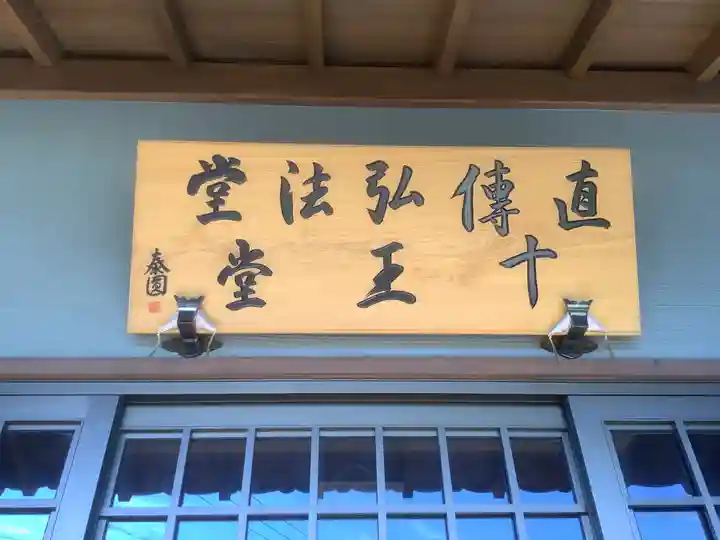 直傳弘法堂
十王堂
泰園